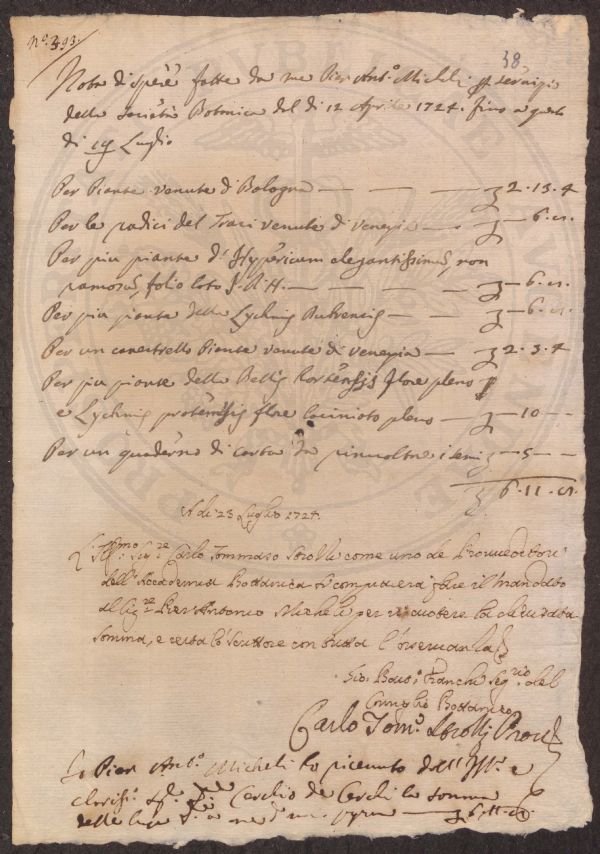 N.º 393.
38
Nota di spese fatte da me Pier Ant.º Micheli p servizio
della Società Botanica dal di 12 Aprile 1724. fino a questo
di 19 Luglio
Per Piante venute di Bologna — — — — 2.13.4
Per le radici del venute di Venezia — — 6.
Per più piante di Hypericum elegantissimum, non
ramosum, folio lato J. R. H. — — — 6.
Per più piante della Lychnis — — 6.
Per un canestrello Piante venute di Venezia — 2.3.4
Per più piante della Bellis Hortensis flore pleno
e Lychnis pratensis flore laciniato pleno — — 10 —
Per un quaderno di carta da rinvoltare i semi — 5 —
6.11.
A di 23 Luglio 1724.
L'Ill.mo Sig.re Carlo Tommaso Strozzi come uno de Provveditori
dell' Accademia Bottanica si compiacerà fare il mandato
al Sig.re Pier Antonio Micheli per riscuotere la
somma, e resta lo scrittore con tutta l'osservanza
Gio. Franchi Seg.rio del
Consiglio Bottanico
Carlo Tom.º Strozzi Prov.
Io Pier Ant.º Micheli ho ricevuto dall' Ill.º e
Sig. Cerchio de Cerchi la somma
delle 6.11.